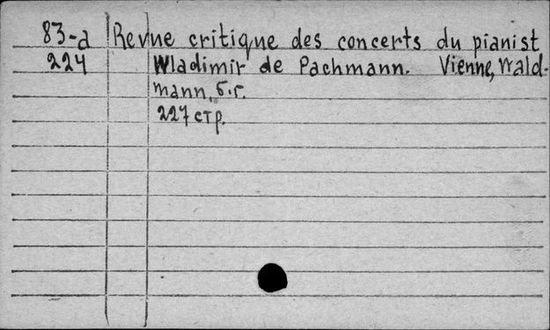 83-а Revue critique des concerts du pianist
224 Wladimir de Pachmann. Vienne, Wald-
mann, б.г.
227 стр.